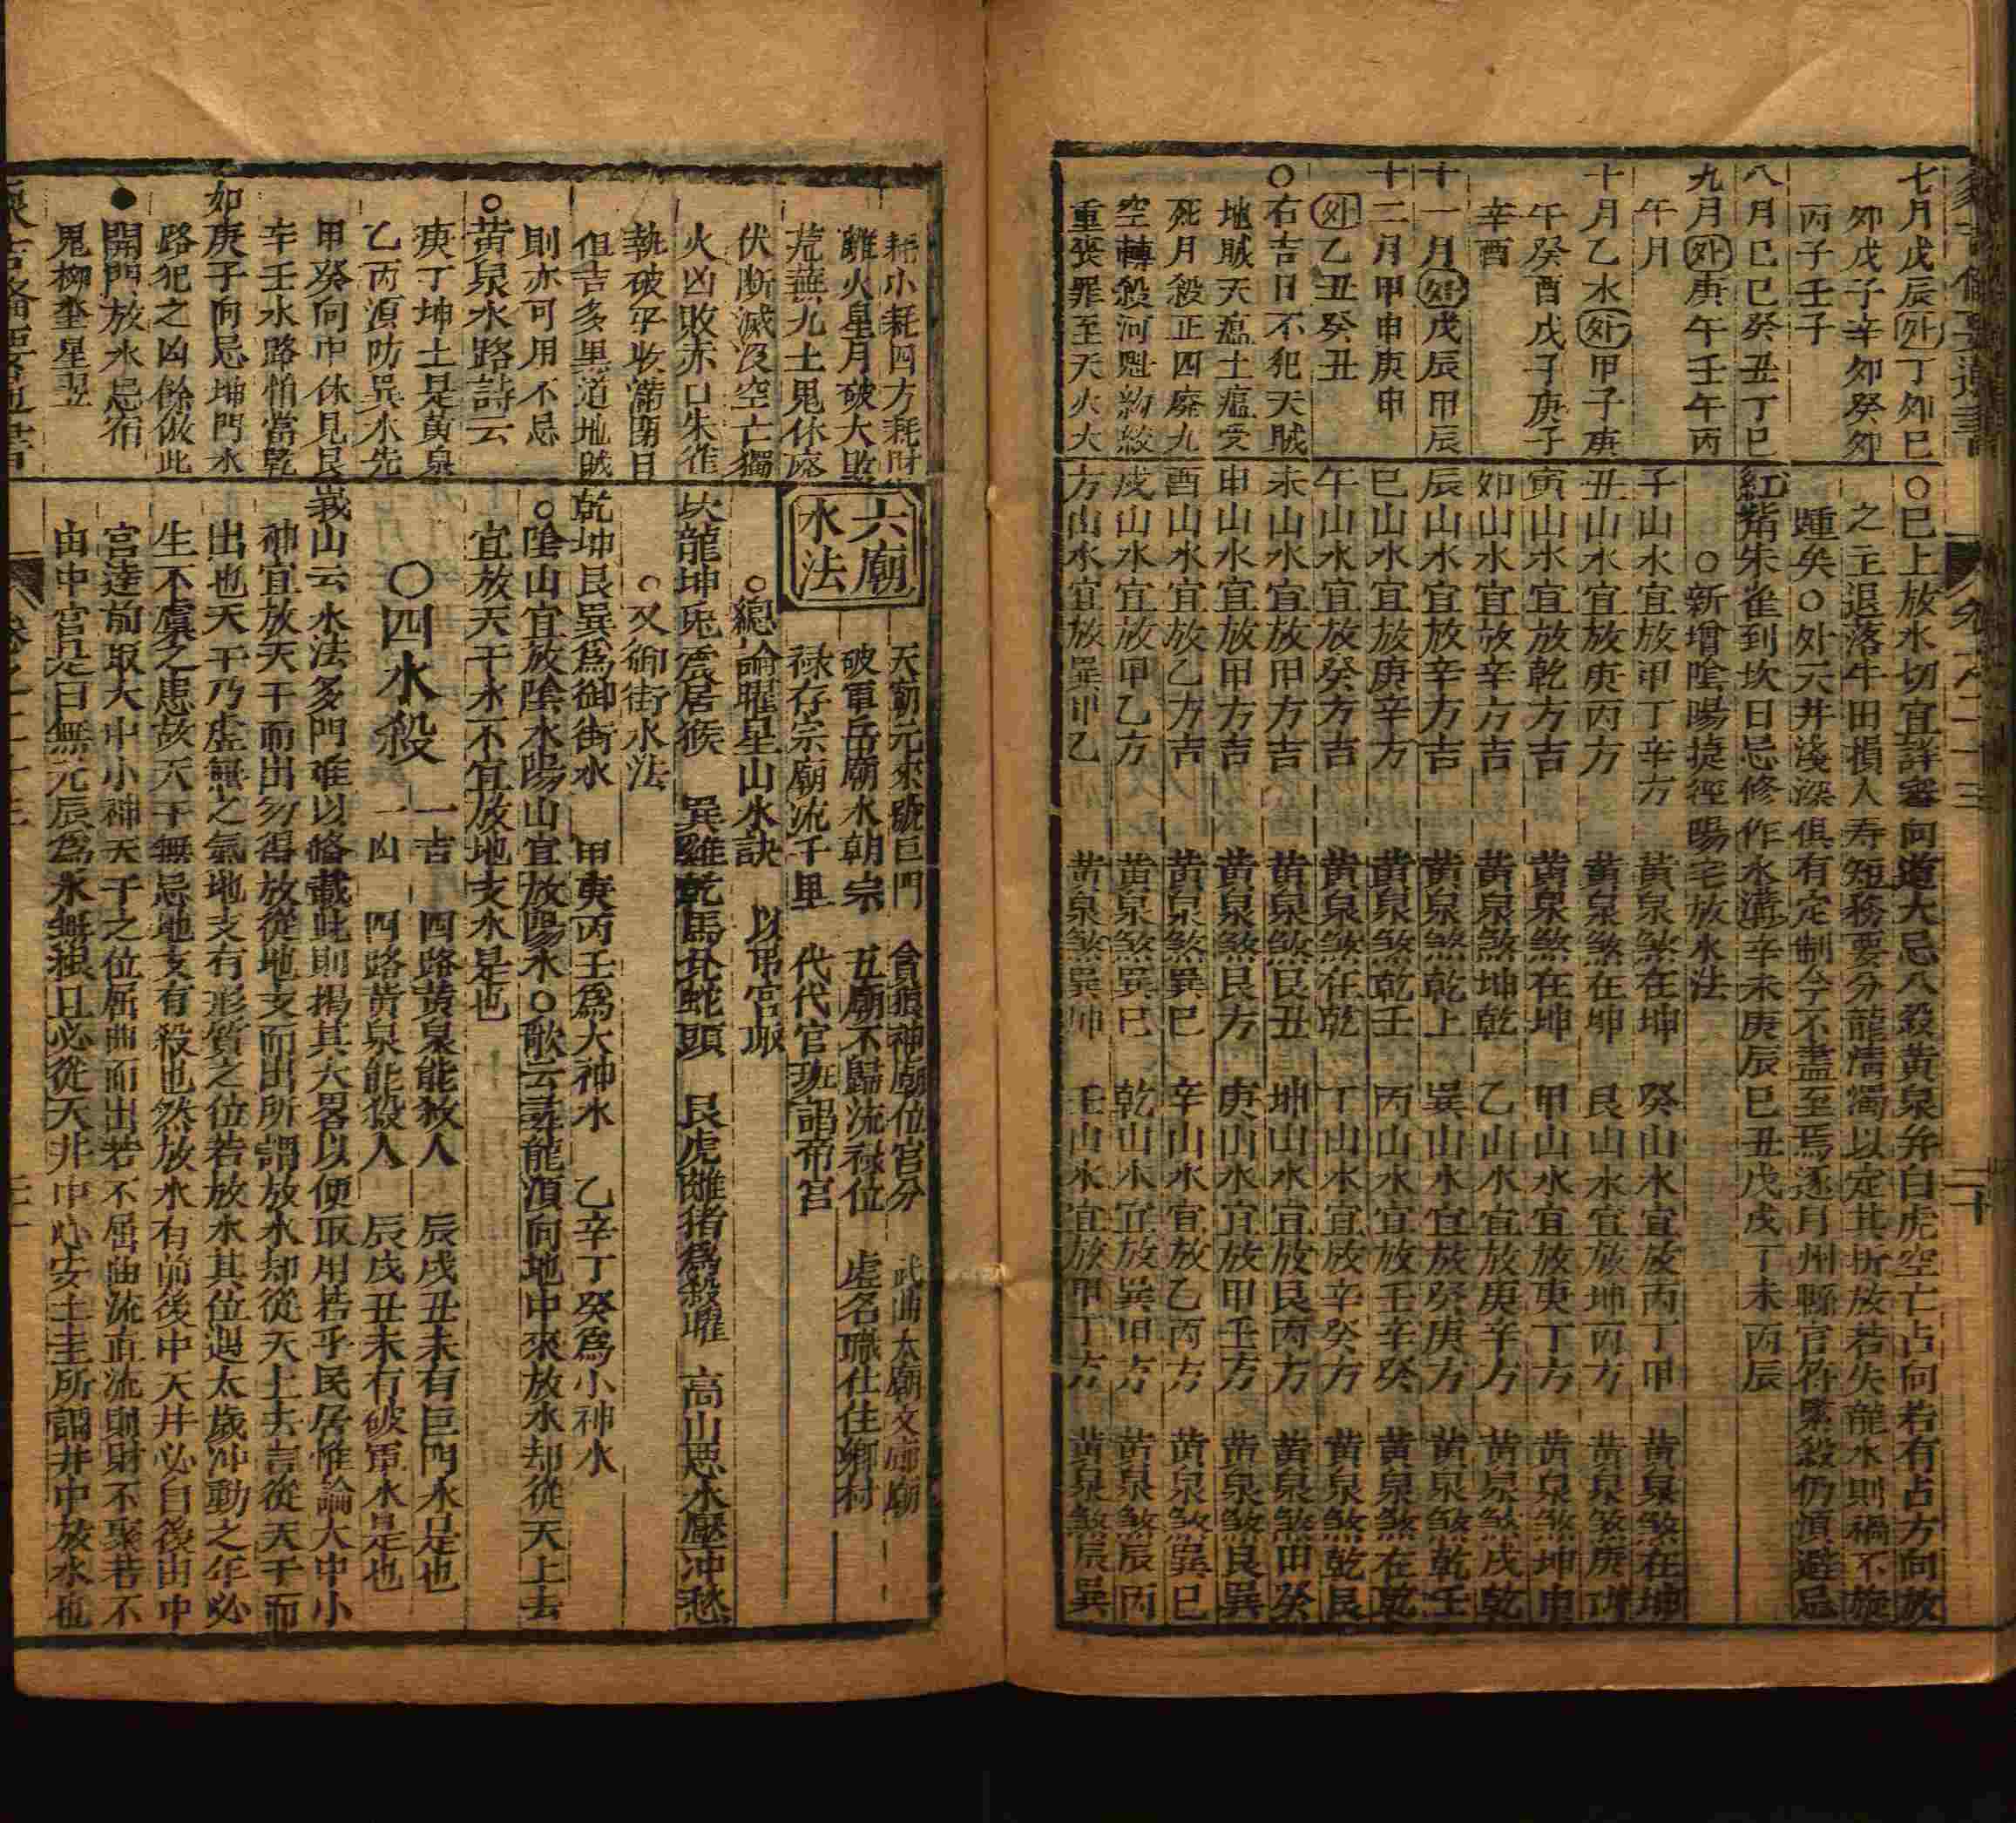 七月戊辰外丁卯巳
卯戊子辛卯癸卯
丙子壬子
八月巳巳癸丑丁巳
九月外庚午壬午丙
午月
十月乙水外甲子庚
午癸酉戊子庚子
辛酉
十一月外戊辰甲辰
十二月甲申庚申
外乙丑癸丑
○右吉日不犯天賊
地賊天瘟土瘟受
死月殺正四廢九
空轉殺河魁約絞
重喪罪至天火大
○巳上放水切宜詳審向道大忌八殺黃泉并白虎空亡占向若有占方向放
之主退落牛田損人寿短務要分龍清濁以定其折放若失龍水則禍不旋
踵矣○外元井淺深俱有定制今不盡至焉逐月州縣官符累殺仍湏避忌
紅觜朱雀到坎日忌修作水溝辛未庚辰巳丑戊戌丁未丙辰
○新增陰陽捷徑陽宅放水法
子山水宜放甲丁辛方 黃泉煞在坤 癸山水宜放丙丁甲 黃泉煞在坤
丑山水宜放庚丙方 黃泉煞在坤 艮山水宜放坤丙方 黃泉煞庚
寅山水宜放乾方吉 黃泉煞在坤 甲山水宜放庚丁方 黃泉煞坤申
卯山水宜放辛方吉 黃泉煞坤乾 乙山水宜放庚辛方 黃泉煞戌乾
辰山水宜放辛方吉 黃泉煞乾上 巽山水宜放癸庚方 黃泉煞乾壬
巳山水宜放庚辛方 黃泉煞乾壬 丙山水宜放壬辛癸 黃泉煞在乾
午山水宜放癸方吉 黃泉煞在乾 丁山水宜放辛癸方 黃泉煞乾艮
未山水宜放甲方吉 黃泉煞艮丑 坤山水宜放艮丙方 黃泉煞甲癸
申山水宜放甲方吉 黃泉煞艮方 庚山水宜放甲壬方 黃泉煞艮巽
酉山水宜放乙方吉 黃泉煞巽巳 辛山水宜放乙丙方 黃泉煞巽巳
戌山水宜放甲乙方 黃泉煞巽巳 乾山水宜放巽甲方 黃泉煞辰丙
方山水宜放巽甲乙 黃泉煞巽坤 壬山水宜放甲丁方 黃泉煞辰巽
耗小耗四方耗財
離火星月破大敗
荒蕪九土鬼休廢
伏断滅没空亡獨
火凶敗赤口朱雀
執破平收滿閉日
但吉多黑道地賊
則亦可用不忌
○黃泉水路詩云
庚丁坤土是黃泉
乙丙湏防巽水先
甲癸向中休見艮
辛壬水路怕當乾
如庚子向忌坤門水
路犯之凶餘倣此
●開門放水忌宿
鬼柳奎星翌
六廟水法
天廟元來號巨門 貪狼神廟位官分 武曲太廟文廊廟
破軍岳廟水朝宗 五廟不歸流祿位 虛名職仕住鄉村
禄存宗廟流千里 代代官班謁帝宮
○總論曜星山水訣 以吊宮取
坎龍坤兎震居猴 巽雞乾馬兊蛇頭 艮虎離猪為殺曜 高山惡水壓冲愁
○又御街水法
乾坤艮巽為御街水 甲庚丙壬為大神水 乙辛丁癸為小神水
○陰山宜放陰水陽山宜放陽水○歌云尋龍湏向地中來放水却從天上去
宜放天干水不宜放地支水是也
○四水殺 一吉 四路黃泉能救人 辰戌丑未有巨門水是也
一凶 四路黃泉能殺人 辰戌丑未有破軍水是也
義山云水法多門难以备載此則揭其大畧以便取用若乎民居惟論大中小
神宜放天干而出勿得放從地支而出所謂放水却從天上去言從天干而
出也天干乃虛無之氣地支有形質之位若放水其位遇太歲冲動之年必
生不虞之患故天干無忌地支有殺也然放水有前後中天井必自後由中
宮達前取大中小神天干之位屈曲而出若不屈曲流直流則財不聚若不
由中宮是曰無元辰為水無猿且必從天井中心安土圭所謂井中放水也